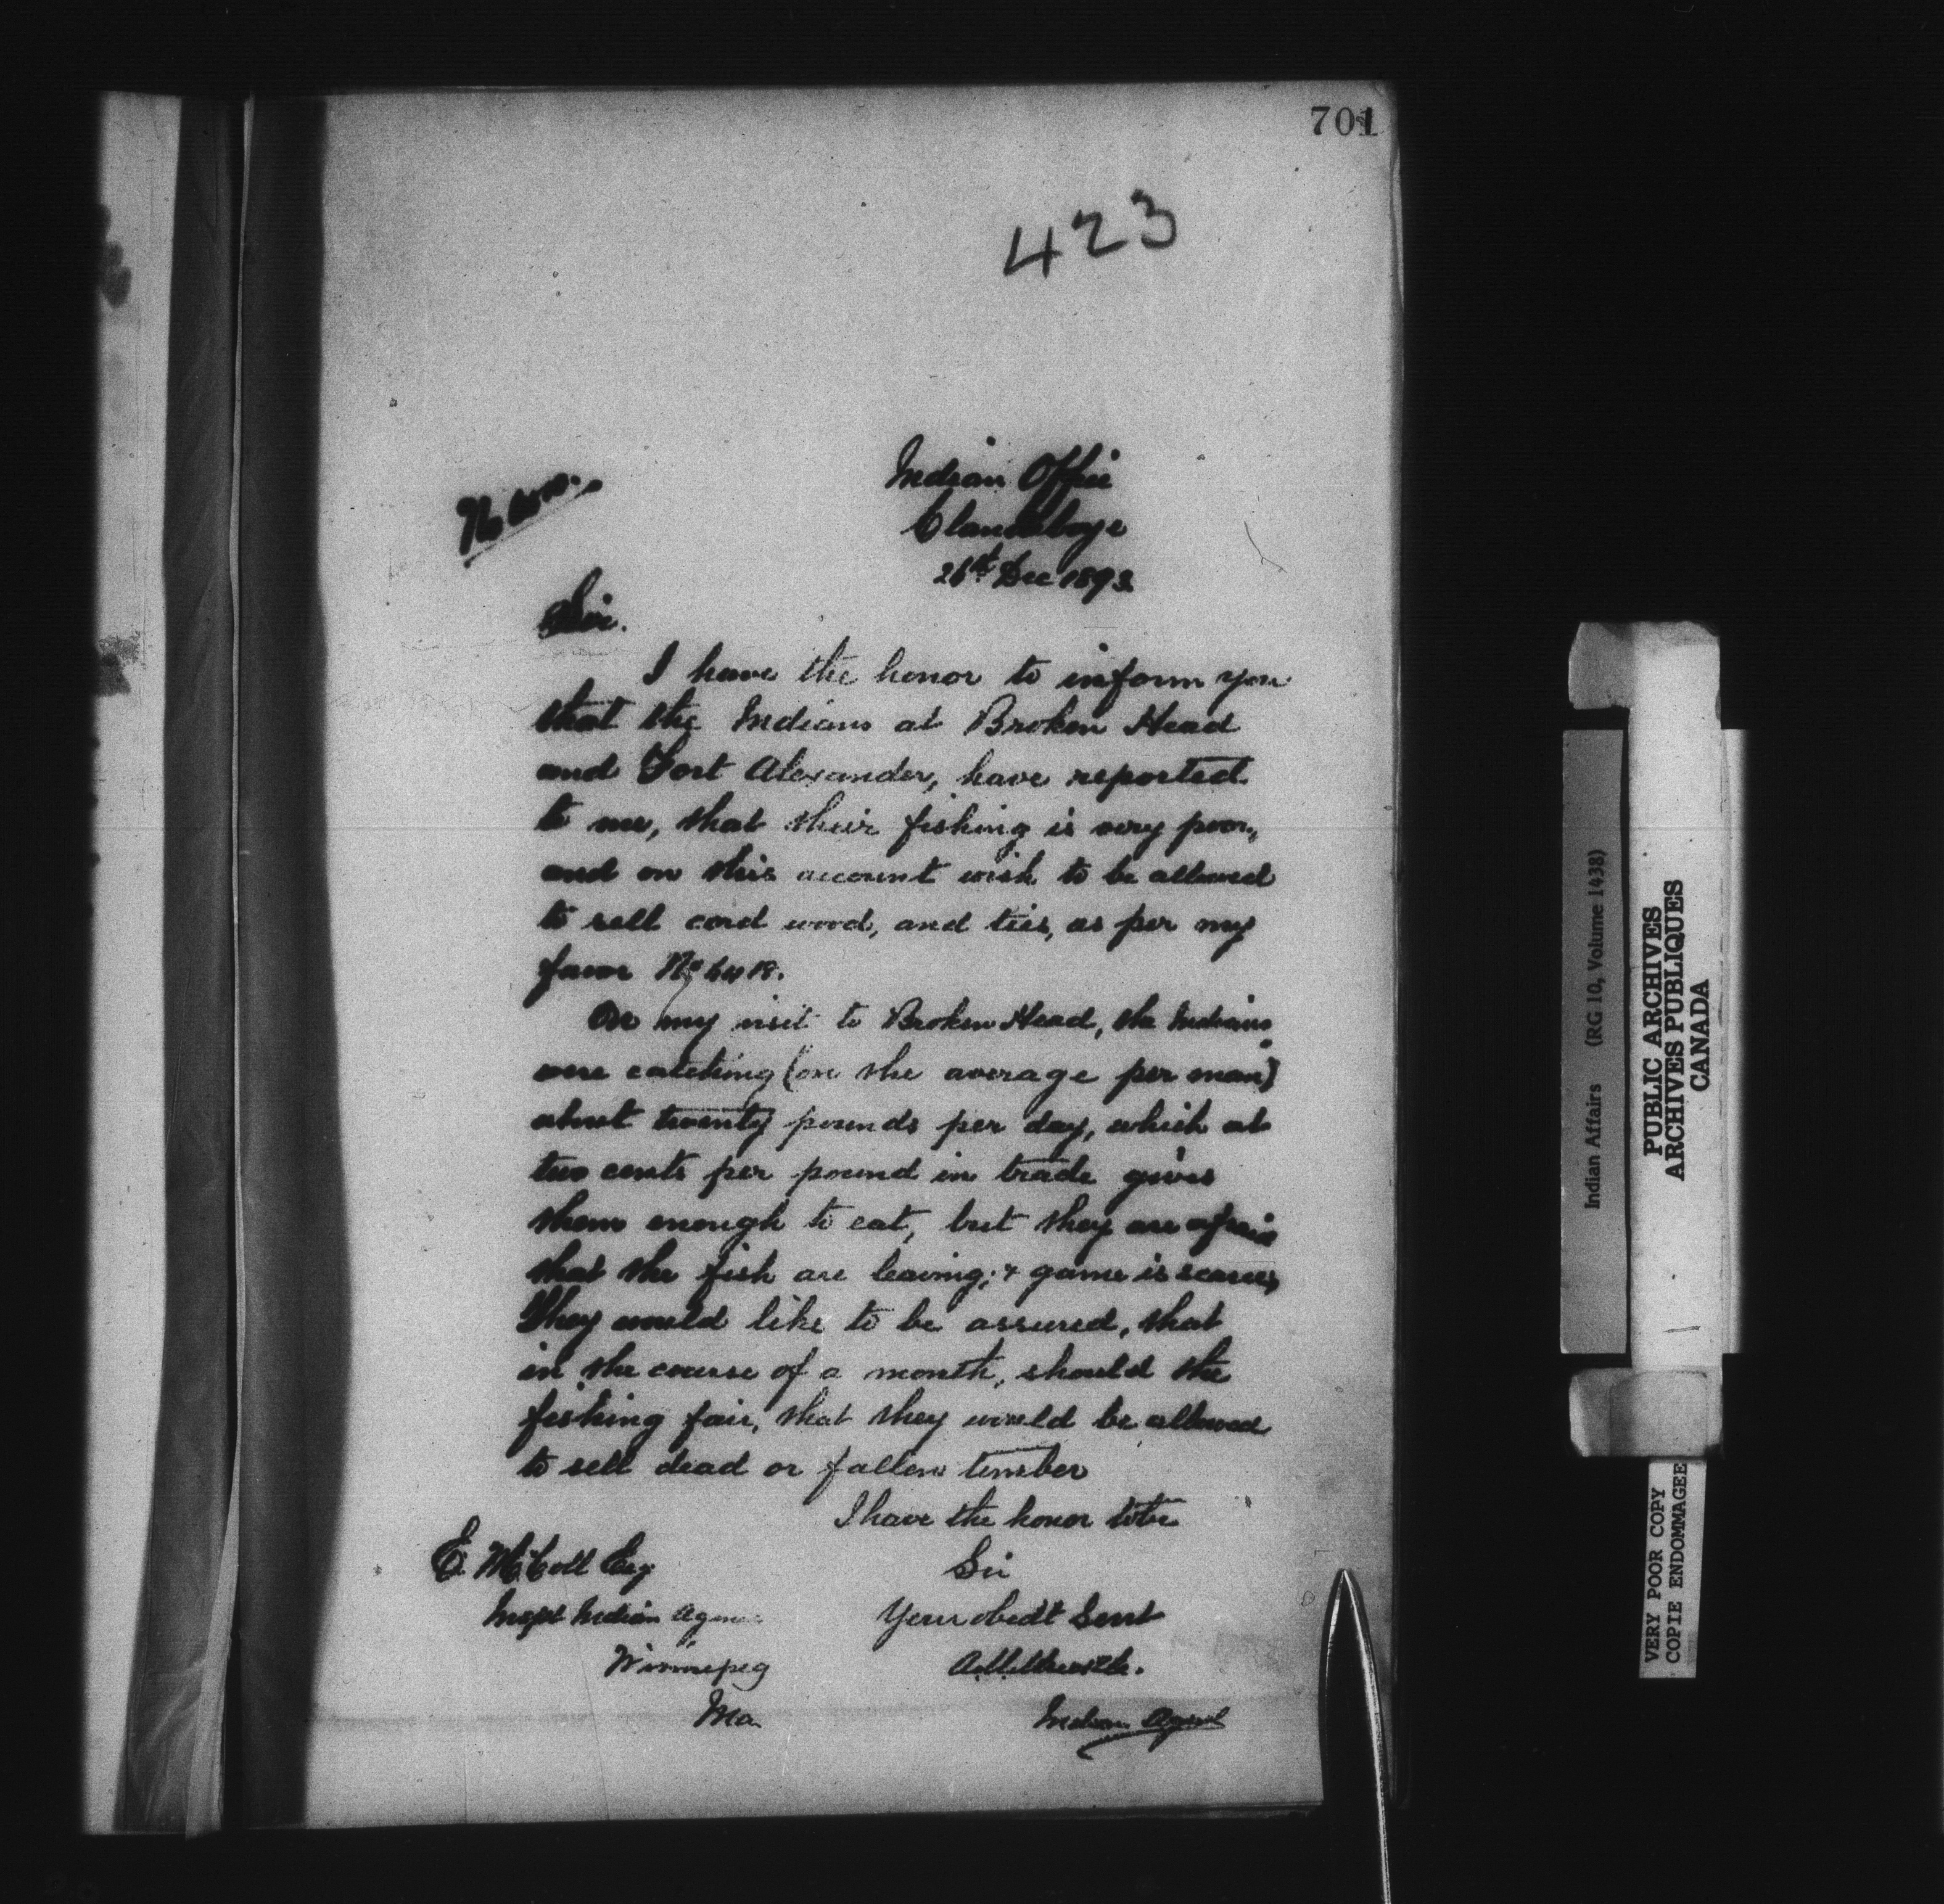 701
423
Indian Office
Clandeboye
26th Dec 1893
Sir.
I have the honor to inform you
that the Indians at Broken Head
and Fort Alexander, have reported
to me, that their fishing is very poor,
and on this account wish to be allowed
to sell cord wood, and ties, as per my
favor No
On my visit to Broken Head, the Indians
were catching (on the average per man)
about twenty pounds per day, which at
two cents per pound in trade gives
them enough to eat, but they are afraid
that the fish are leaving; & game is scarce,
They would like to be assured, that
in the course of a month, should the
fishing fair, that they would be allowed
to sell dead or fallen timber
I have the honor to be
Sir
Your obedt Servt
Indian Agent
E. McColl Esq
Inspt Indian Agencies
Winnipeg
Ma.
Indian Affairs (RG 10, Volume 1438)
PUBLIC ARCHIVES
ARCHIVES PUBLIQUES
CANADA
VERY POOR COPY
COPIE ENDOMMAGEE